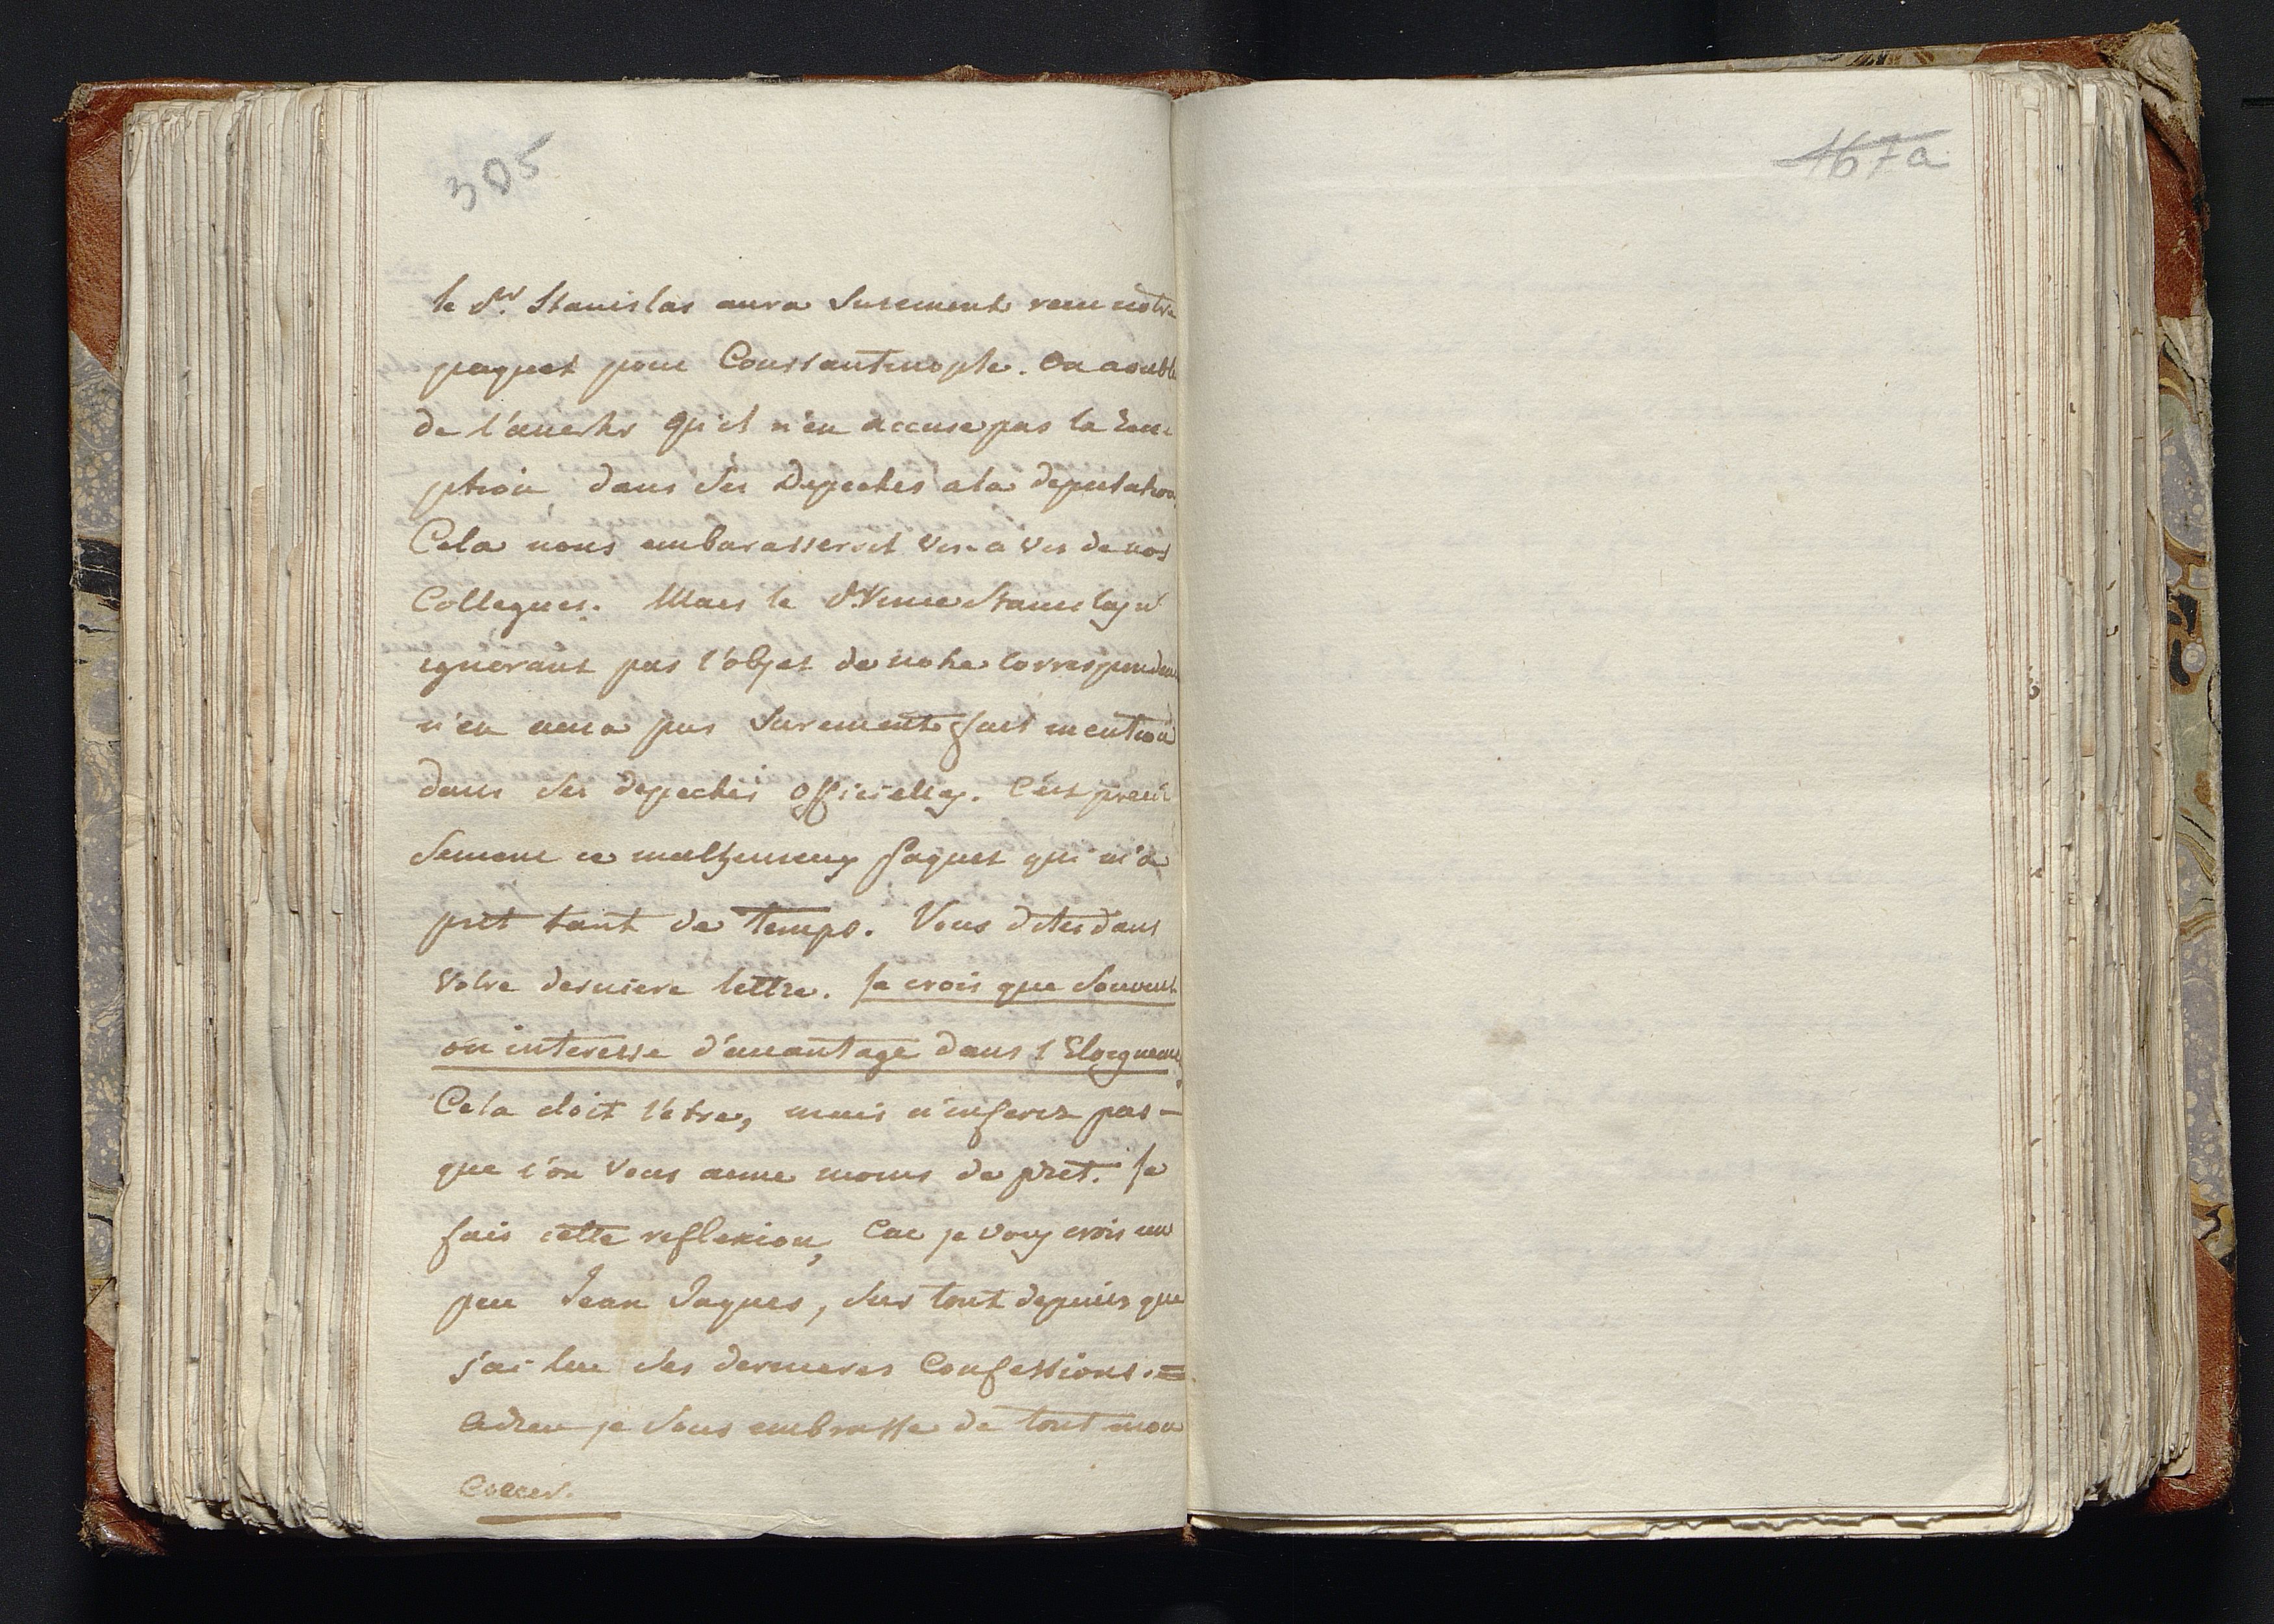 305
167a
le Sr. Stanislas aura Surement recu notre
paquet pour Constantinople. On a oublié
de l'avertir qu'il n'en accuse pas la Rece-
ption dans Ses Depeches a la deputation
Cela nous embarasseroit Vis-a Vis de nos
Collegues. Mais le Stanislas n'
ignorant pas l'objet de notre Correspondence
n'en aura pas Surement fait mention
dans Ses depeches Officielles. C'est preci
Sement ce malheureux paquet qui m'a
prit tant de temps. Vous dites dans
Votre derniere lettre. Je crois que Souvent
on interesse d'avantage dans l'Eloignement
Cela doit l'etre, mais n'inferez pas -
que l'on Vous aime moins de prêt. Je
fais cette reflexion, Car je vous crois un
peu Jean Jaques, Sur tout depuis que
j'ai lue Ses dernieres Confessions. =
Adieu je Vous embrasse de tout mon
Coeur.